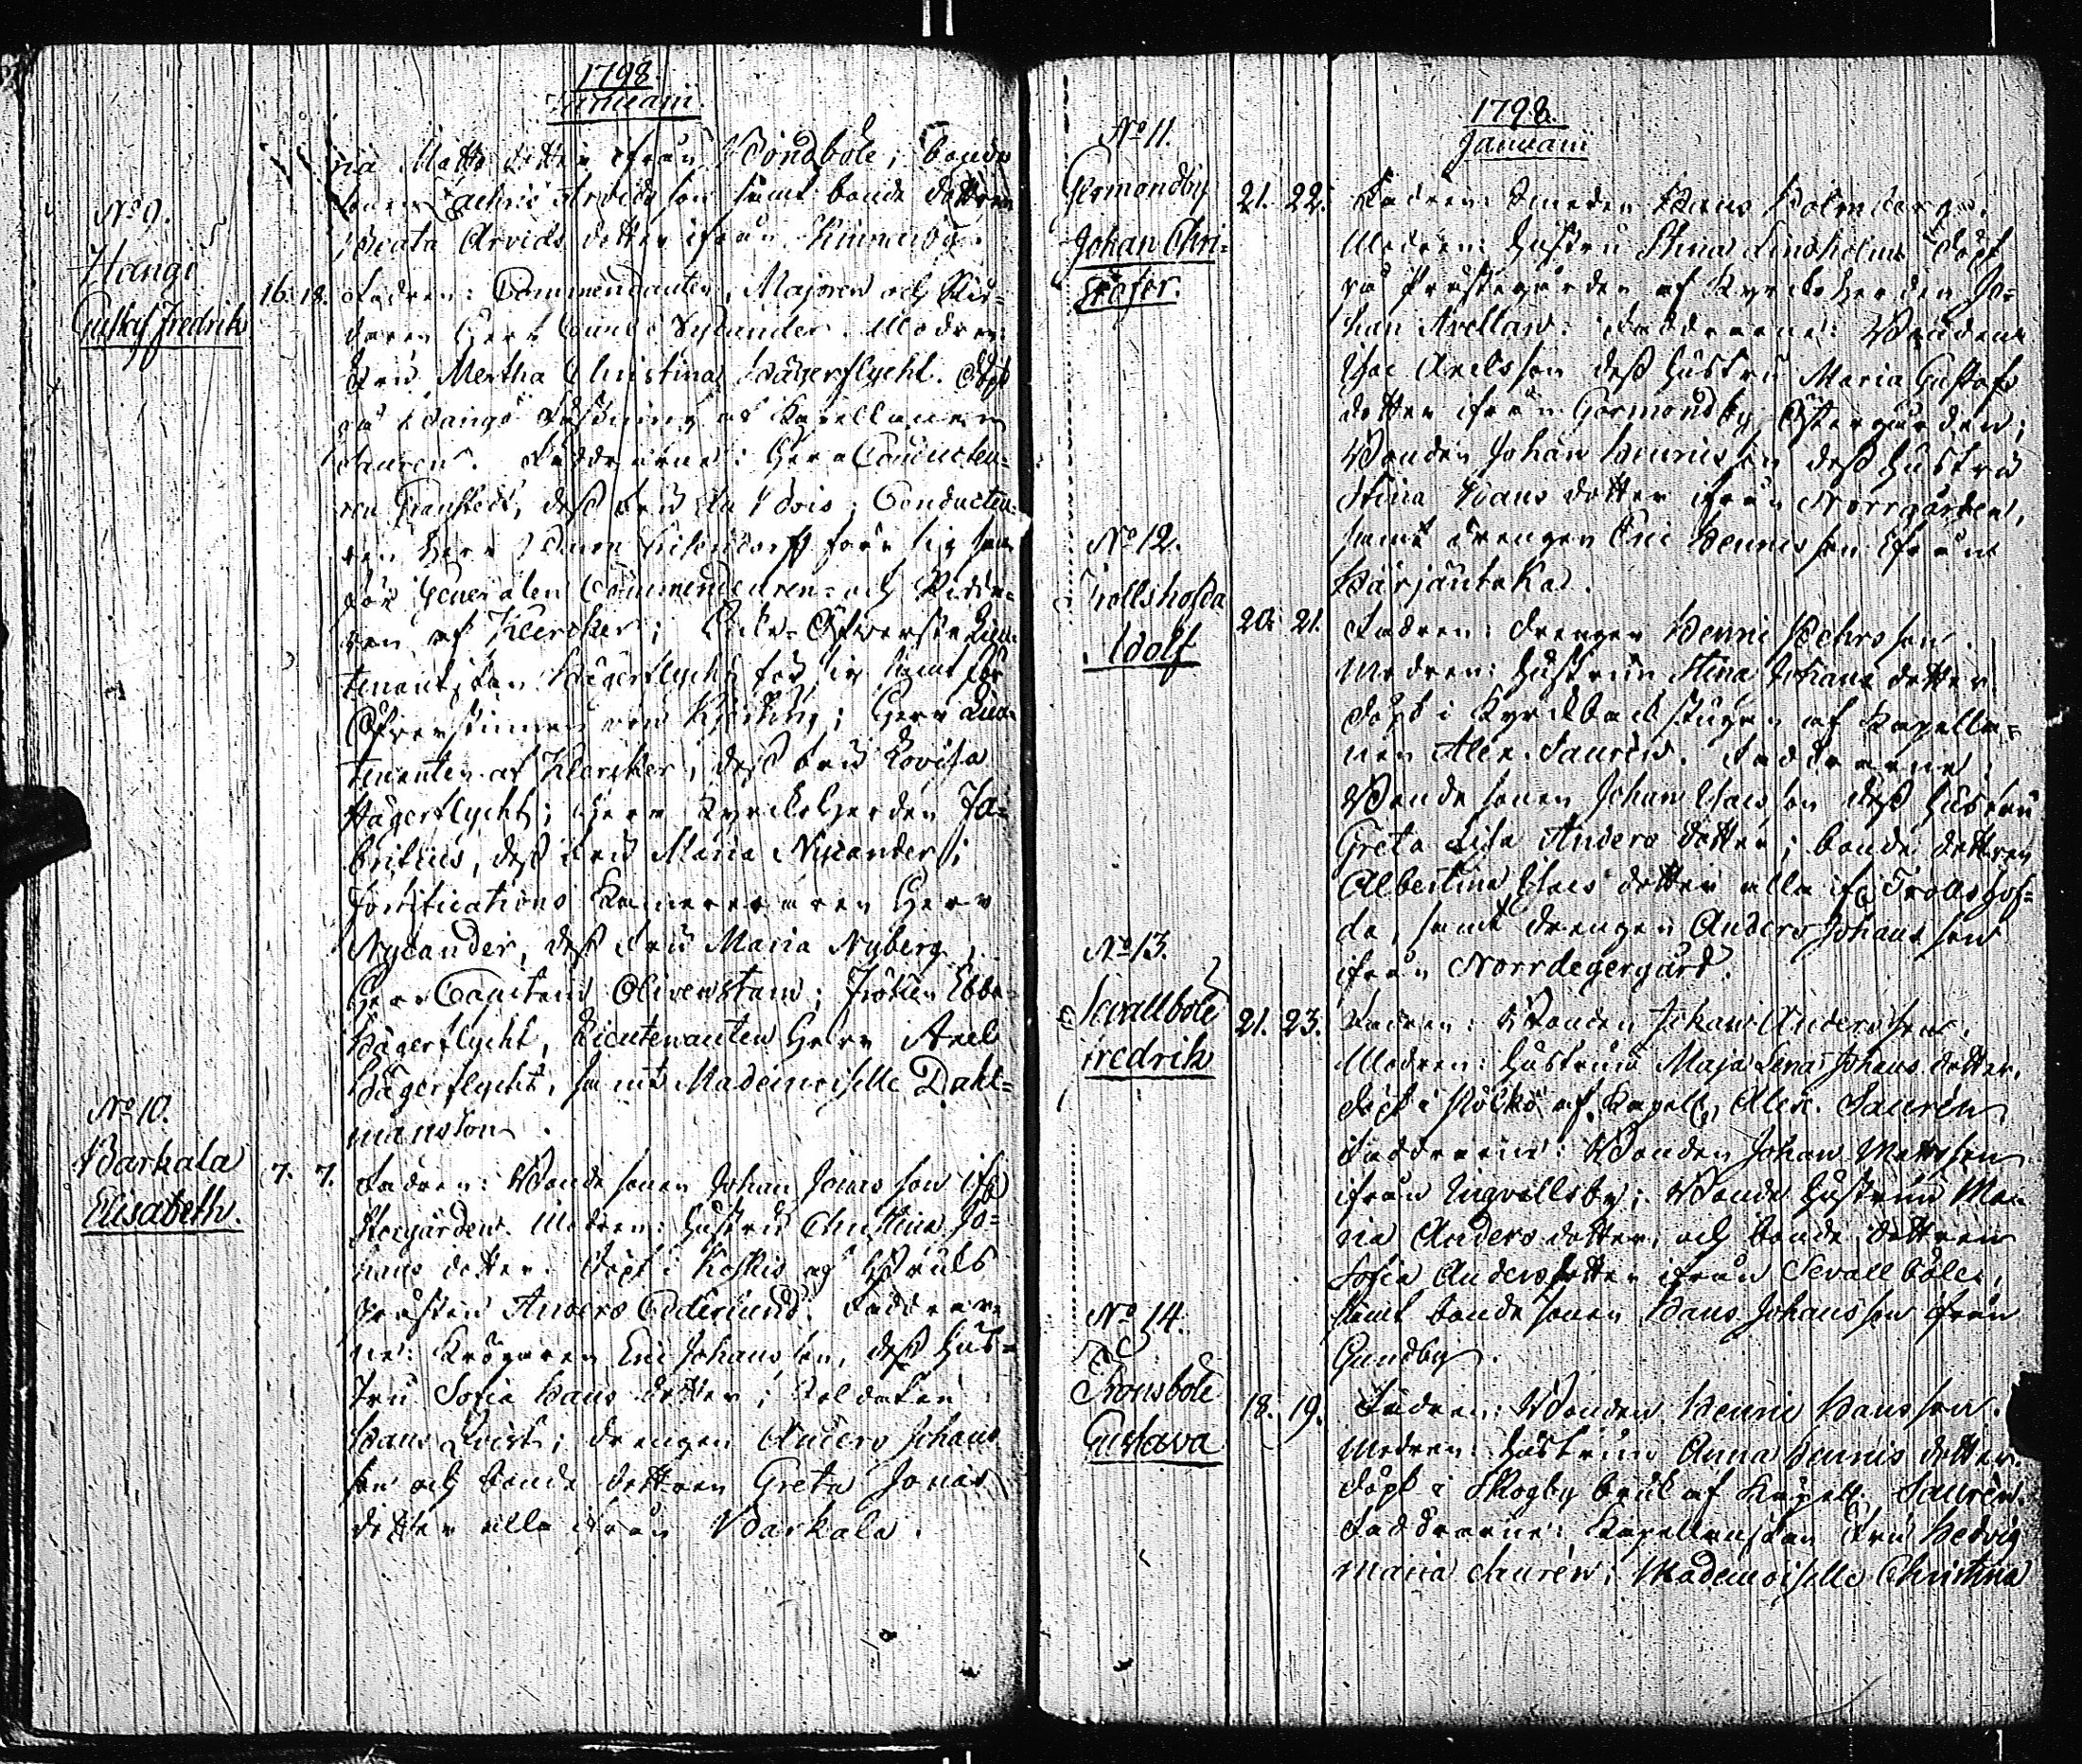 1798.
Januarii
ria Matts dotter ifrån Böndbole; bonde
sonen Zachris Arvidsson samt bonde dottren
Beata Arvids dotter ifrån Rinneby.
No 9.
Hangö
Gustaf Fredrik
16. 18. Fadren: Commendanten, Majoren och Rid=
daren Herr Nylander. Modren:
Fru Mertha Christina Hägerflycht. Döpt
på Hangö Fästning af Kapellanen
Saurén. Faddrarne: Herr Conducteu=
ren dess Fru Conducteu=
ren Herr för sig samt
för Generalen Commendeuren och Ridda=
ren af Klercker; Öfverste Lieu=
tenantskan Hägerflycht för sig samt för
Öfverstinnan von Herr Lieu=
tenanten af Klercker, dess fru Lovisa
Hägerflycht; Herr Kyrckoherden Fa=
britius, dess fru Maria Nycander;
Fortifications Kamereraren Herr
Nycander, dess Fru Maria Nyberg,
Herr Capitain Olivenstam; Fröken Ebba
Hägerflycht, Lieutenanten Herr Axel
Hägerflycht, samt Mademoiselle Dahl=
manston.
No 10.
Barkala
Elisabeth.
7. 7. Fadren: Bonde sonen Johan Jonas son ifr.
Storgården. Modren: Hustru Christina Jo=
hans dotter. Döpt i Koskis af Bruks
prästen Anders Cedersund. Faddrar=
ne: Krögaren Eric Johansson, dess Hus=
tru Sofia Hans dotter; Soldaten
Hans Qvist; drengen Anders Johans
son och bonde dottren Greta Jonas
dotter alla ifrån Barkala.
1798.
Januarii
No 11.
Germondby
Johan Chri=
stofer.
21. 22. Fadren: Smeden Hans Holmberg.
Modren: Hustru Stina Lindholm. Döpt
på Prästegården af Kyrckoherden Jo=
han Avellan. Faddrarne: Bonden
Isac Axelsson dess Hustru Maria Gustafs
dotter ifrån Germondby Östergården;
Bonden Johan Henriksson dess Hustru
Stina Hans dotter ifrån Norrgården,
samt drengen Eric Henricsson ifrån
Härjänteka.
No 12.
Trollshofda
Adolf
20. 21. Fadren: drengen Henric Pehrsson.
Modren: Hustrun Stina Johans dotter.
Döpt i Kyrckback stugan af Kapella=
nen Alex. Saurén. Faddrarne:
Bonde sonen Johan Isacsson dess Hustru
Greta Lisa Anders dotter; bonde dottren
Albertina Isacs dotter alla ifr. Trollshof=
da, samt drengen Anders Johansson
ifrån Norrdegergård.
No 13.
Sevallbole
Fredrik
21. 23. Fadren: Bonden Johan Andersson.
Modren: Hustrun Maja Lena Johans dotter.
Döpt i af Kapell. Alex. Saurén
Faddrarne: Bonden Johan Mattsson
ifrån Ingvallsby; Bonde Hustrun Ma=
ria Anders dotter, och bonde dottren
Sofia Anders dotter ifrån Sevallböle;
samt bonde sonen Hans Johansson ifrån
Gundby.
No 14.
Fransbole
Gustava
18. 19. Fadren: Bonden Henric Hansson.
Modren: Hustrun Anna Henrics dotter.
Döpt i Skogby bruk af Kapell. Saurén.
Faddrarne: Kapellanskan Fru Hedvig
Maria Saurén; Mademoiselle Christina